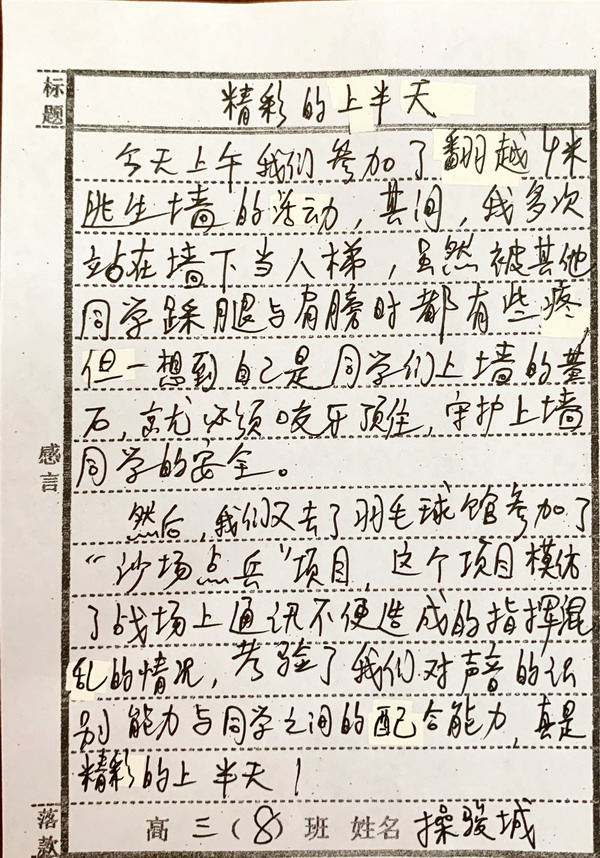 标题
精彩的上半天
今天上午我们参加了翻越4米
逃生墙的活动，其间，我多次
站在墙下当人梯，虽然被其他
同学踩腿与肩膀时都有些疼
但一想到自己是同学们上墙的基
石，就必须咬牙顶住，守护上墙
同学的安全。
感言
然后，我们又去了羽毛球馆参加了
“沙场点兵”项目，这个项目模仿
了战场上通讯不便造成的指挥混
乱的情况，考验了我们对声音的识
别能力与同学之间的配合能力，真是
精彩的上半天！
落款
高三（8）班 姓名 操骏城